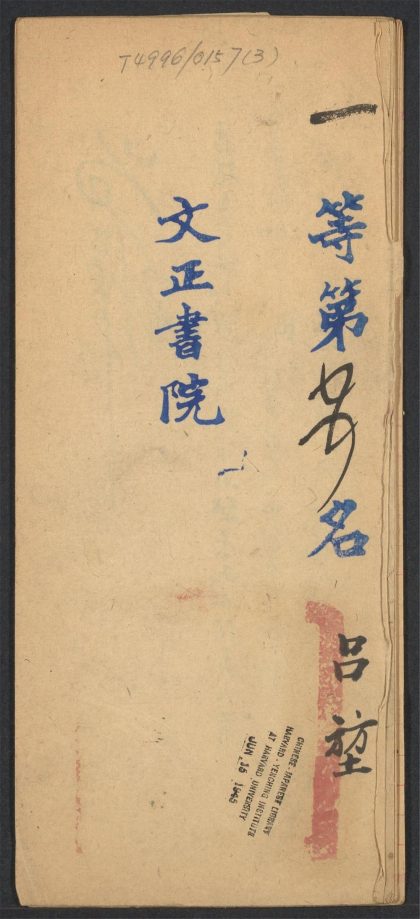 T4996/0157(3)
一等第名 吕堃
文正書院
CHINESE-JAPANESE LIBRARY
HARVARD-YENCHING INSTITUTE
AT HARVARD UNIVERSITY
JUN 15 1945